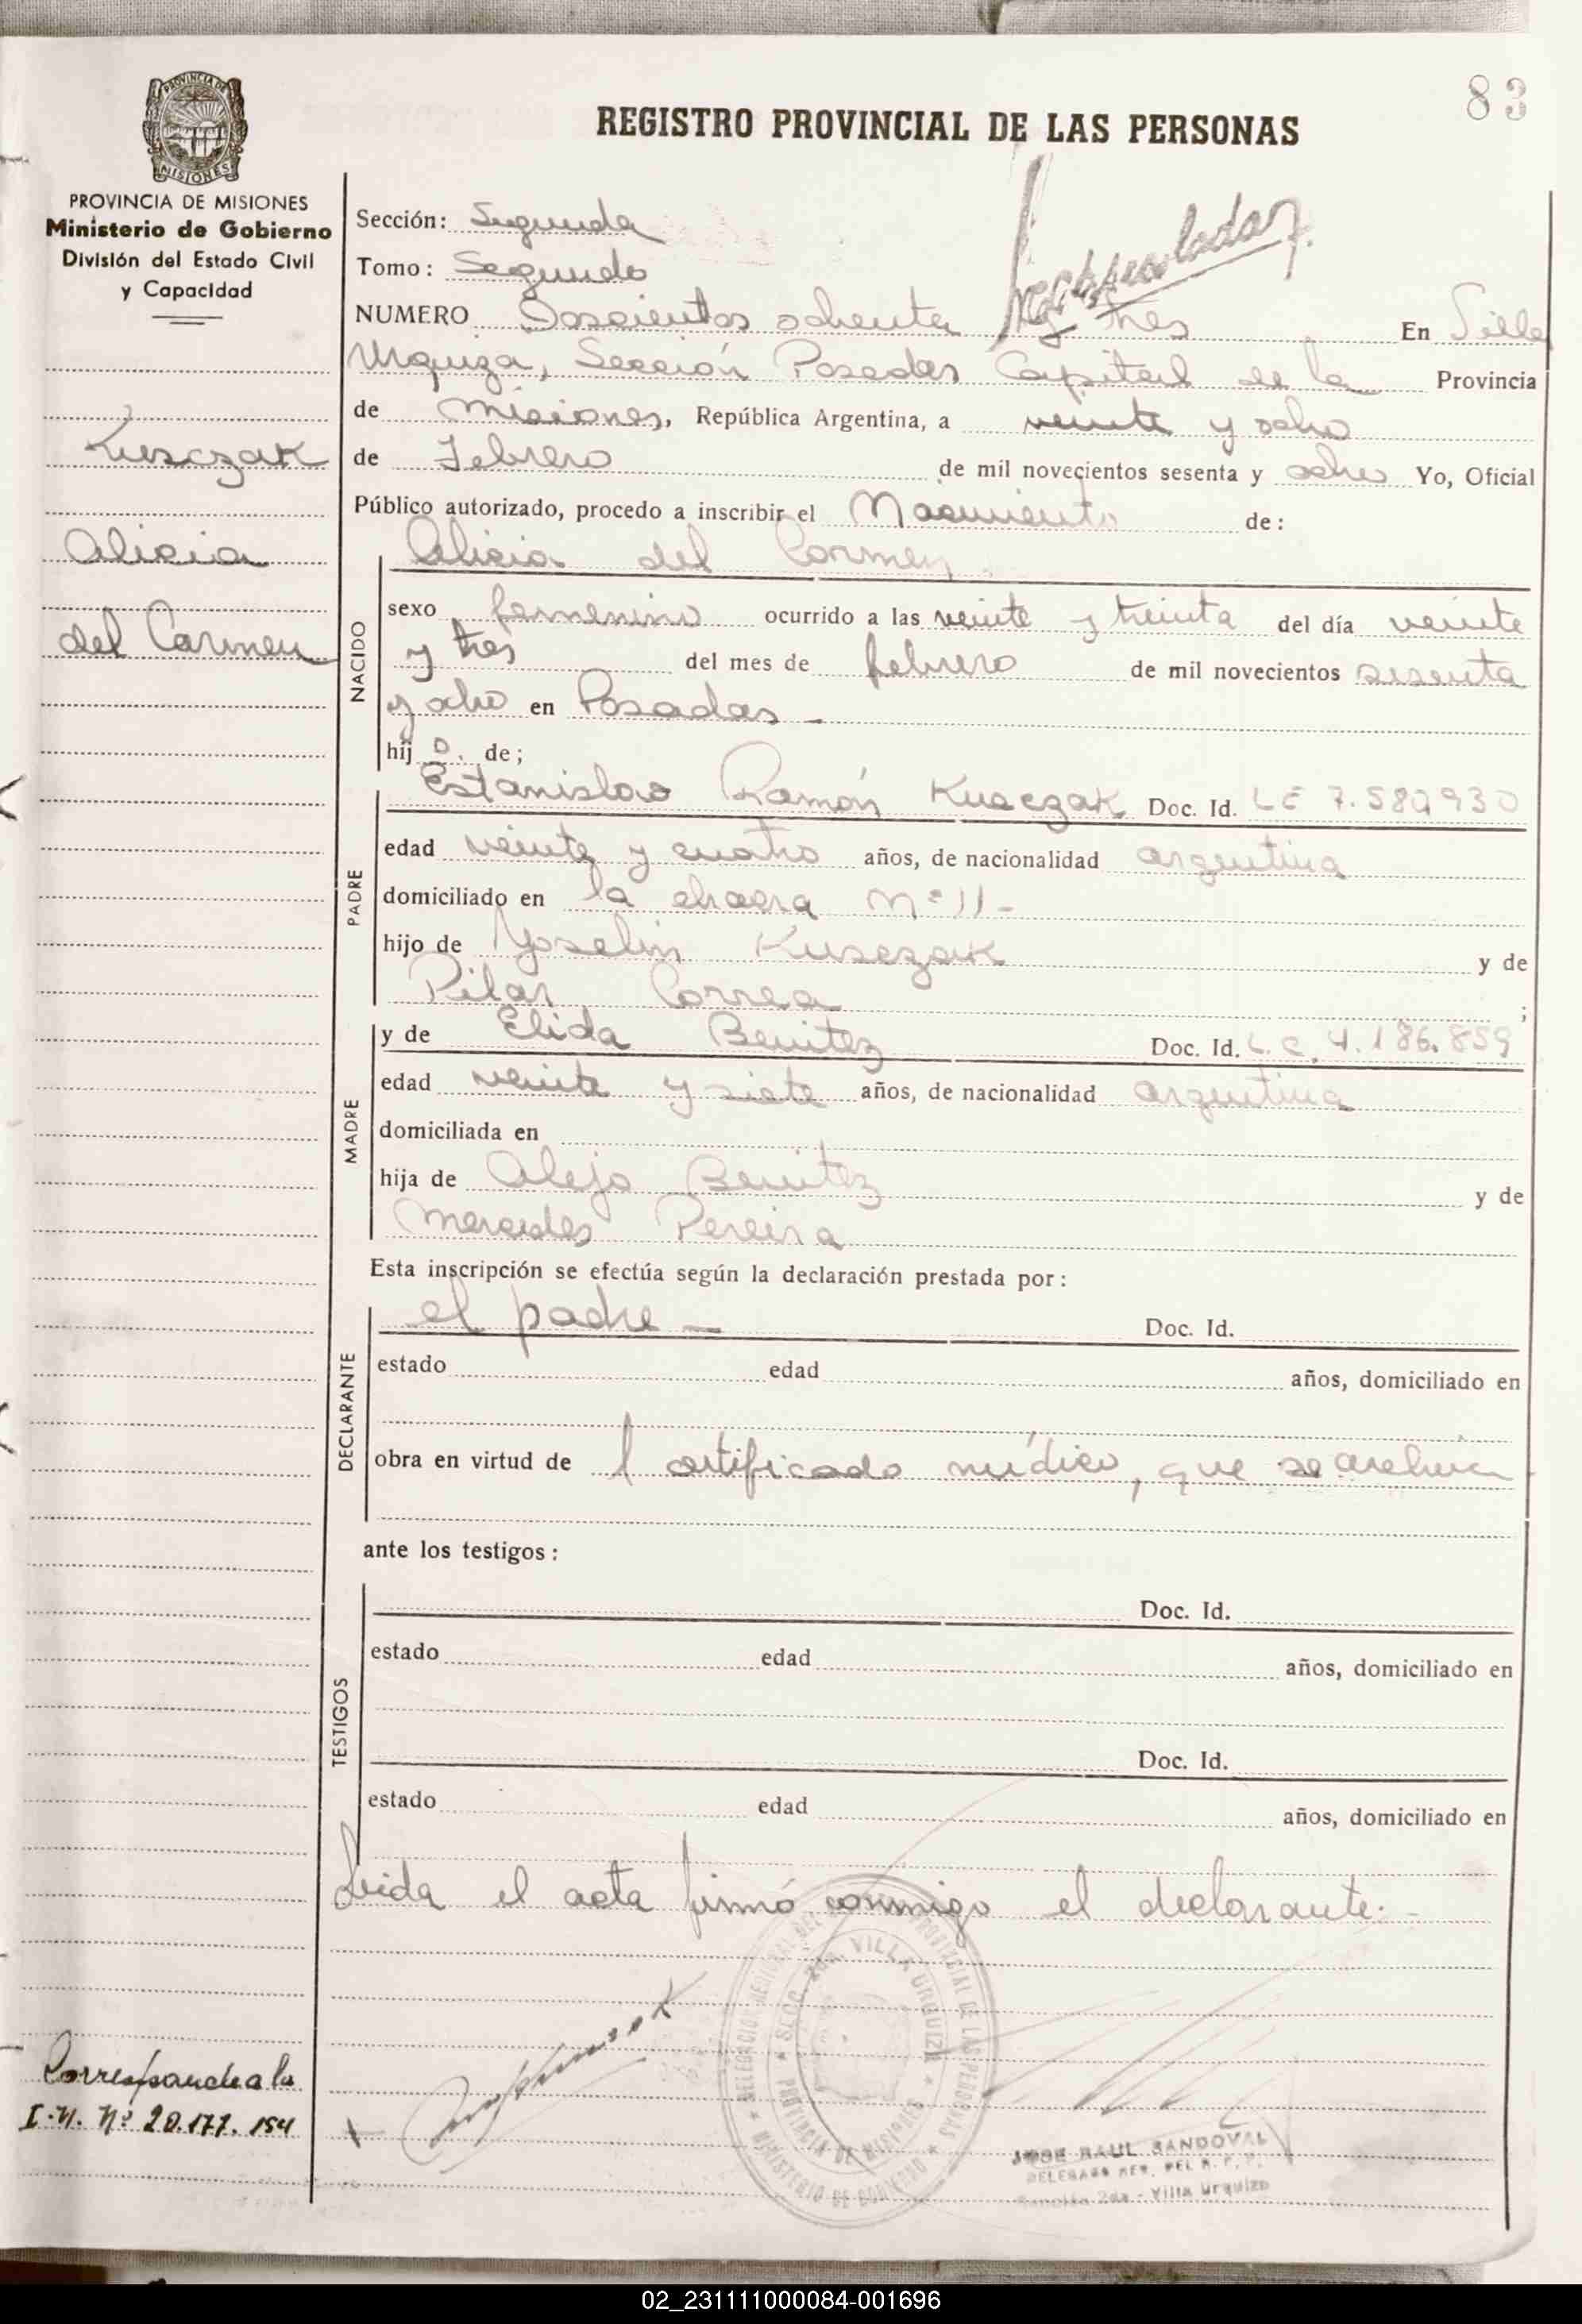 83
PROVINCIA DE MISIONES
REGISTRO PROVINCIAL DE LAS PERSONAS
PROVINCIA DE MISIONES
Ministerio de Gobierno
División del Estado Civil
y Capacidad
Kusczak
Alicia
del Carmen
Sección: Segunda
Tomo: Segundo
NUMERO Doscientos ochenta y tres En Villa
Urquiza, Sección Posadas Capital de la Provincia
de Misiones, República Argentina, a veinte y ocho
de Febrero de mil novecientos sesenta y ocho Yo, Oficial
Público autorizado, procedo a inscribir el Nacimiento de:
Alicia del Carmen
NACIDO
sexo femenino ocurrido a las veinte y treinta del día veinte
y tres del mes de febrero de mil novecientos sesenta
y ocho en Posadas -
hij o. de;
PADRE
Estanislao Ramón Kusczak Doc. Id. LE 7.589930
edad veinte y cuatro años, de nacionalidad argentina
domiciliado en la chacra Nº 11-
hijo de Yoselin Kusczak y de
Pilar Correa ;
MADRE
y de Elida Benitez Doc. Id. L.C. 4.186.859
edad veinte y siete años, de nacionalidad argentina
domiciliada en
hija de Alejo Benitez y de
Mercedes Pereira
Esta inscripción se efectúa según la declaración prestada por:
DECLARANTE
el padre - Doc. Id.
estado edad años, domiciliado en
obra en virtud de l certificado médico, que se archiva
ante los testigos:
TESTIGOS
Doc. Id.
estado edad años, domiciliado en
Doc. Id.
estado edad años, domiciliado en
Leida el acta firmó conmigo el declarante. -
Corresponde a la
I.N. Nº 20.177.154
SECC. 2da. VILLA URQUIZA
PROVINCIA DE MISIONES
MINISTERIO DE GOBIERNO
JOSE RAUL SANDOVAL
DELEGADO REG. DEL R. P. P.
Sección 2da - Villa Urquiza
02_231111000084-001696